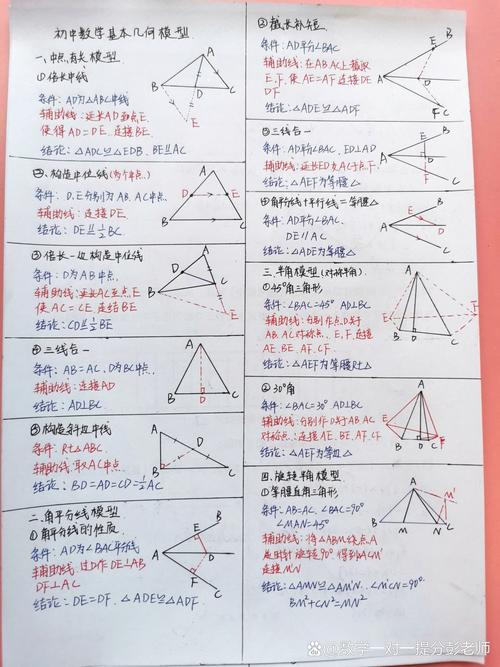 初中数学基本几何模型
一、中点有关模型
①倍长中线
条件: AD为△ABC中线
辅助线: 延长AD到点E,
使得 AD=DE, 连接BE.
结论: △ADC≌△EDB. BE∥AC
②构造中位线(多个中点)
条件: D、E分别为AB、AC中点
辅助线: 连接DE
结论: DE∥½BC
③倍长一边构造中位线
条件: D为AB中点.
辅助线: 延长AC至点E,
使 AC=CE, 连结BE
结论: CD∥½BE
④三线合一
条件: AB=AC, D为BC中点.
辅助线: 连接AD
结论: AD⊥BC.
⑤构造斜边中线
条件: Rt△ABC.
辅助线: 取AC中点
结论: BD=AD=CD=½AC
二、角平分线模型
①角平分线的性质
条件: AD为∠BAC平分线
辅助线: 过D作DE⊥AB
DF⊥AC
结论: DE=DF. △ADE≌△ADF.
②截长补短
条件: AD平分∠BAC
辅助线: 在AB、AC上截取
E、F, 使AE=AF 连接DE
DF
结论: △ADE≌△ADF
③三线合一
条件: AD平分∠BAC, ED⊥AD
辅助线: 延长ED交AC于点F.
结论: △AEF为等腰△
④角平分线+平行线=等腰△
条件: AD平分∠BAC,
DE∥AC
结论: △ADE为等腰△
三、半角模型(对称半角)
①45°角模型
条件: ∠BAC=45° AD⊥BC
辅助线: 分别作点D关于
AB、AC对称点, E、F, 连接
AE、BE、AF、CF.
结论: △AEF为等腰Rt△
②30°角
条件: ∠BAC=30° AD⊥BC
辅助线: 分别作D关于AB、AC
对称点: 连接AE、BE、AF、CF
结论: △AEF为等边△
四、旋转半角模型
①等腰直角三角形
条件: AB=AC, ∠BAC=90°
∠MAN=45°
辅助线: 将△ABM绕点A
逆时针旋转90°得到△ACM'
连接M'N
结论: △AMN≌△AM'N. ∠M'CN=90°.
BM²+CN²=MN²
知乎 @数学一对一提分彭老师